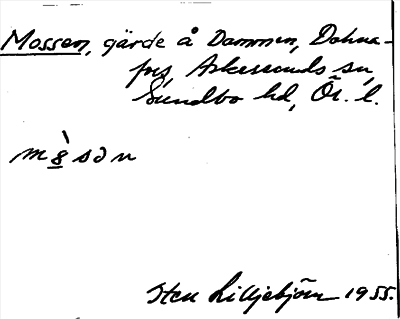 Mossen, gärde å Dammen, Dohna-
fors, Askersunds sn,
Sundbo hd, Ör. l.
m8̀sən
Sten Lilljebjörn 1955.